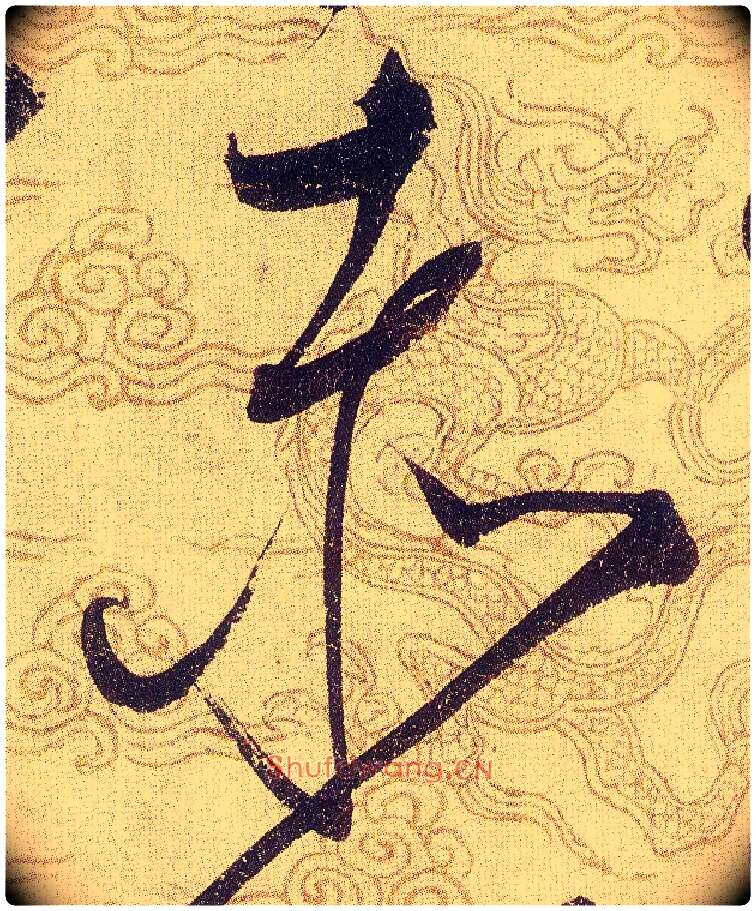 承
Shufawang.CN